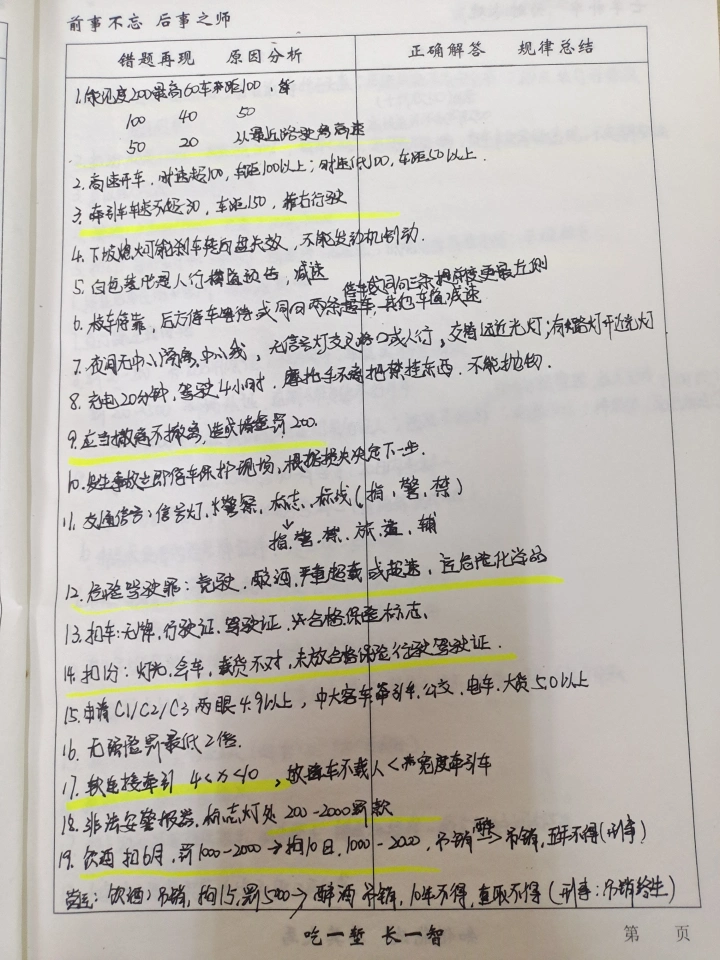 前事不忘 后事之师
错题再现 原因分析 正确解答 规律总结
1.能见度200最高60车距100,
100 40 50
50 20 从最近路驶离高速
2.高速开车,时速超100,车距100以上;时速低100,车距50以上.
3.牵引车车速不超30,车距150,靠右行驶
4.下坡熄火 刹车转向盘失效,不能发动机制动.
5.白色菱形是人行横道预告,减速
停车或同向三条 最左侧
6.校车停靠,后方停车等待或同向两条 其他车道减速
7.夜间无中心隔离,中心线,无信号灯交叉路口或人行,交替远近光灯;有路灯开近光灯
8.充电20分钟,驾驶4小时.摩托手不离把禁挂东西.不能抛物.
9.应当撤离不撤离,造成堵塞罚200.
10.发生事故立即停车保护现场,根据损失决定下一步.
11.交通信号:信号灯,交警,标志,标线(指,警,禁)
指,警,禁,旅,道,辅
12.危险驾驶罪:竞驶,醉酒,严重超载或超速,运危险化学品
13.扣车:无牌,行驶证,驾驶证,合格保险标志.
14.扣1分:灯光,会车,载货不对,未放合格保险,行驶驾驶证.
15.申请C1/C2/C3两眼4.9以上,中大客车,牵引车,公交,电车,大货5.0以上
16.无强险罚最低2倍.
17.软连接牵引 4<x<10,故障车不载人<宽度牵引车
18.非法安警报器,标志灯处200-2000罚款
19.饮酒扣6月,罚1000-2000→拘10日,1000-2000,吊销 醉酒→吊销,5年不得(刑事)
营运:饮酒:吊销,拘15,罚5000→醉酒 吊销,10年不得,重取不得(刑事:吊销终生)
吃一堑 长一智
第 页